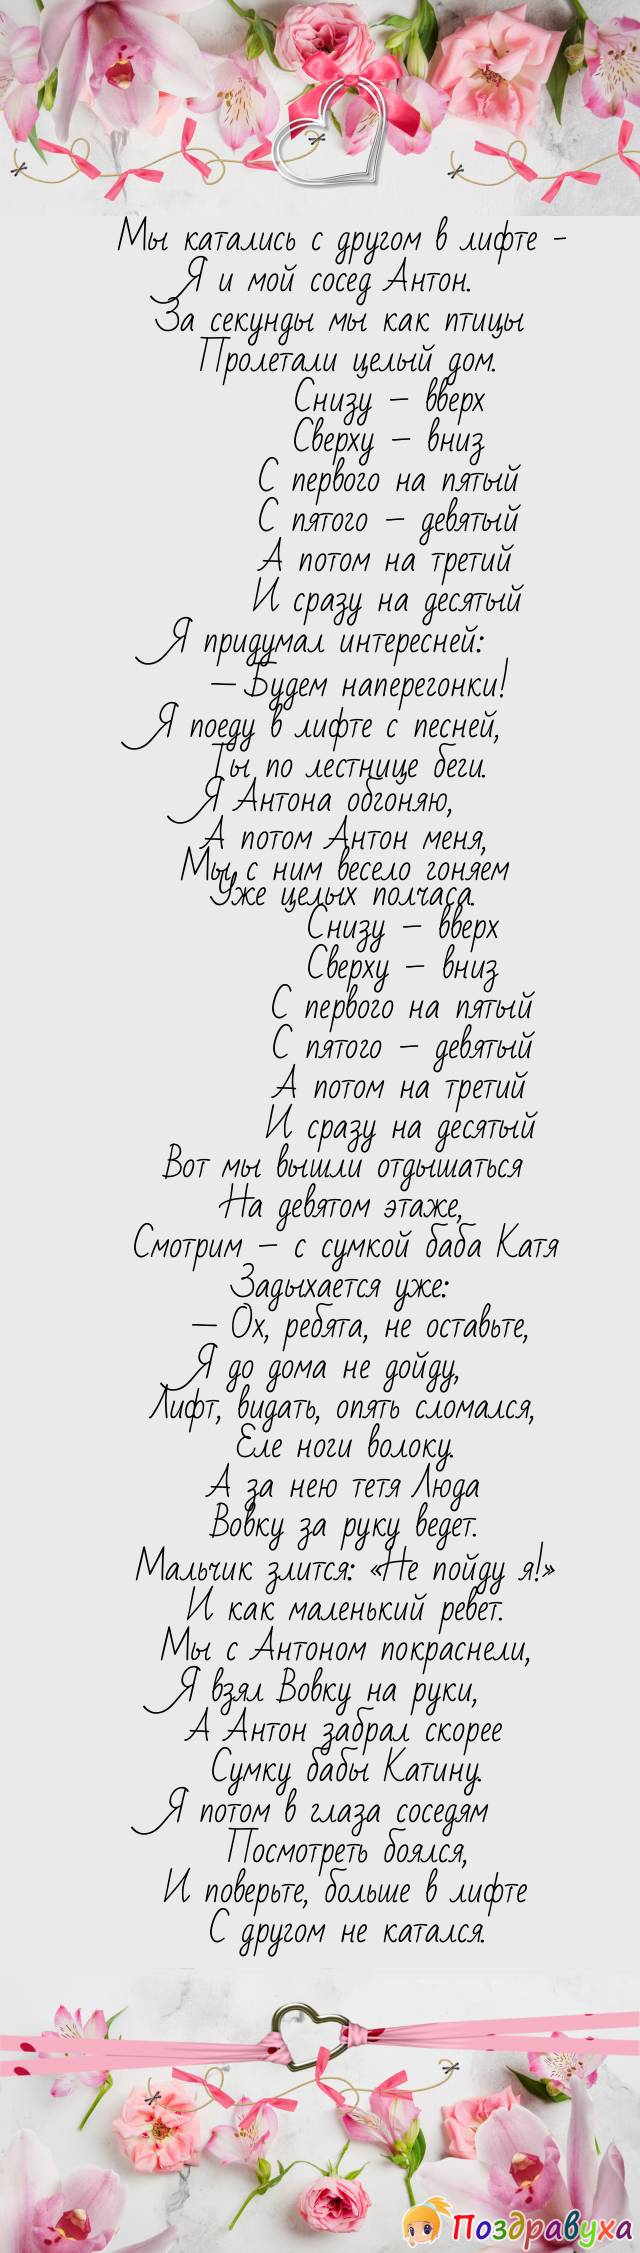 Мы катались с другом в лифте -
Я и мой сосед Антон.
За секунды мы как птицы
Пролетали целый дом.
Снизу – вверх
Сверху – вниз
С первого на пятый
С пятого – девятый
А потом на третий
И сразу на десятый
Я придумал интересней:
– Будем наперегонки!
Я поеду в лифте с песней,
Ты по лестнице беги.
Я Антона обгоняю,
А потом Антон меня,
Мы с ним весело гоняем
Уже целых полчаса.
Снизу – вверх
Сверху – вниз
С первого на пятый
С пятого – девятый
А потом на третий
И сразу на десятый
Вот мы вышли отдышаться
На девятом этаже,
Смотрим – с сумкой баба Катя
Задыхается уже:
– Ох, ребята, не оставьте,
Я до дома не дойду,
Лифт, видать, опять сломался,
Еле ноги волоку.
А за нею тетя Люда
Вовку за руку ведет.
Мальчик злится: «Не пойду я!»
И как маленький ревет.
Мы с Антоном покраснели,
Я взял Вовку на руки,
А Антон забрал скорее
Сумку бабы Катину.
Я потом в глаза соседям
Посмотреть боялся,
И поверьте, больше в лифте
С другом не катался.
Поздравуха